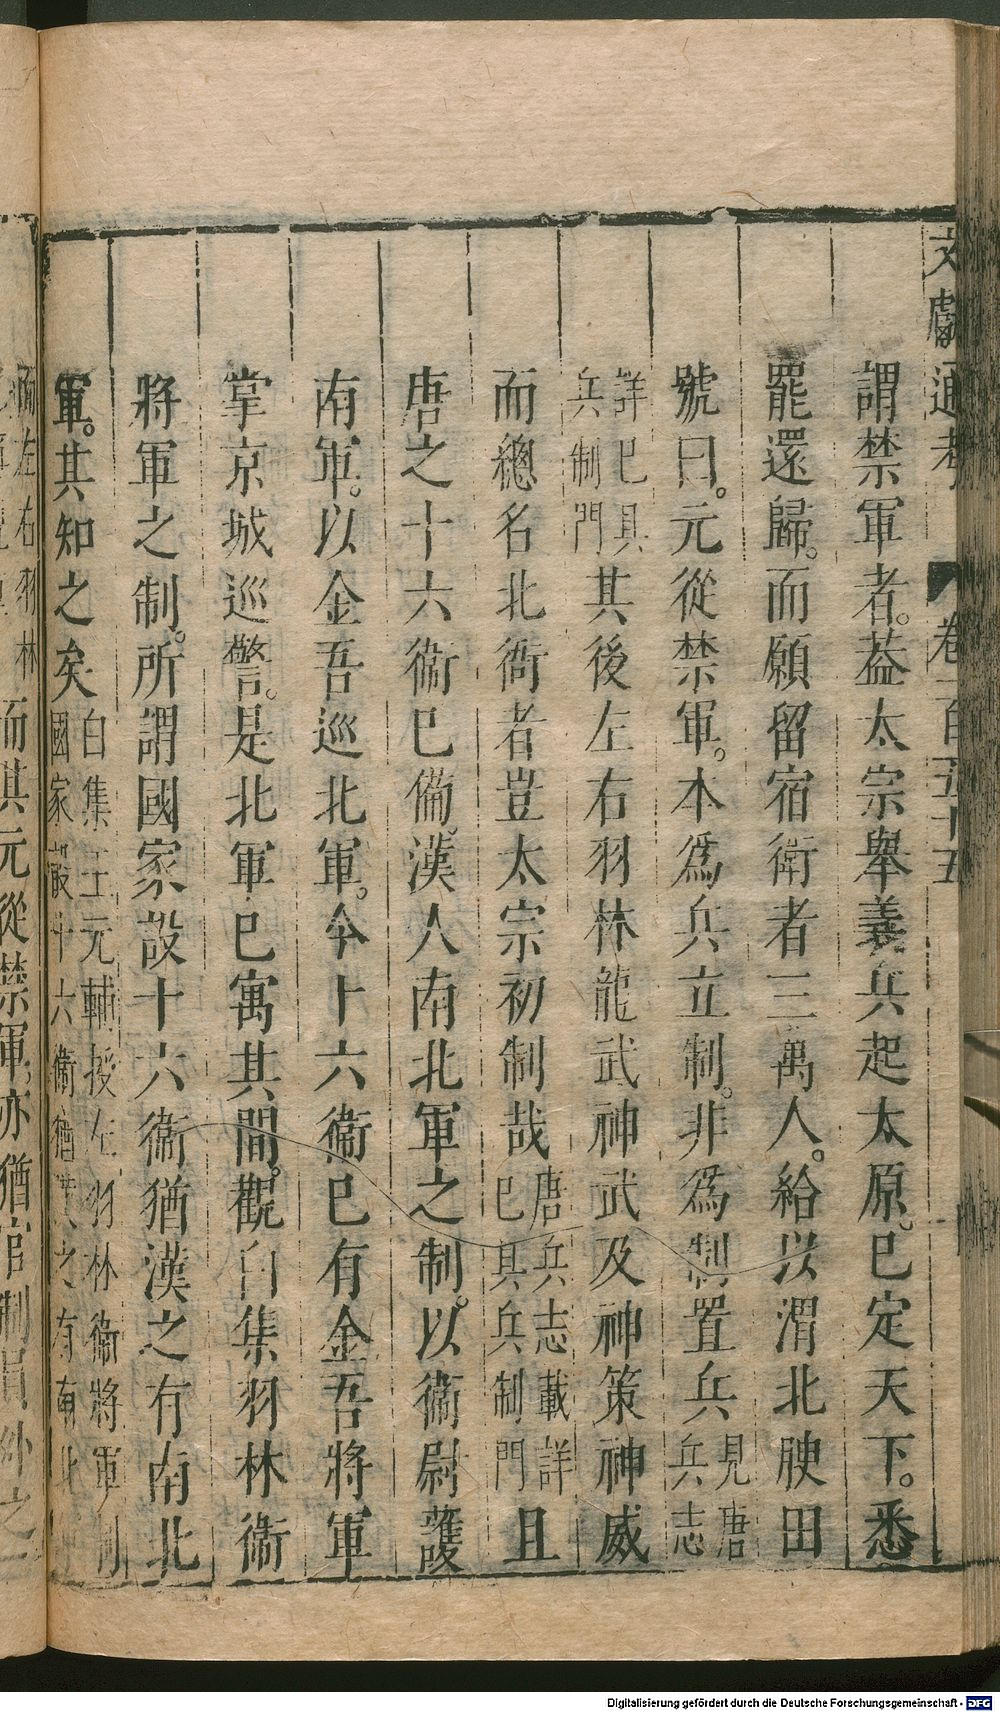 文獻通考 卷一百五十五
謂禁軍者。葢太宗舉義兵起太原。已定天下。悉
罷還歸。而願留宿衛者三萬人。給以渭北腴田
號曰。元從禁軍。本爲兵立制。非爲制置兵見唐兵志
詳巳具兵制門其後左右羽林龍武神武及神策神威
而總名北衙者豈太宗初制哉唐兵志載詳巳具兵制門且
唐之十六衞巳備。漢人南北軍之制。以衞尉護
南軍。以金吾巡北軍。今十六衞巳有金吾將軍
掌京城巡警。是北軍巳寓其間。觀白集羽林衞
將軍之制。所謂國家設十六衞猶漢之有南北
軍。其知之矣白集王元輔授左羽林衞將軍制國家設十六衞猶漢之有南北
而其元從禁軍亦猶官制員外之
Digitalisierung gefördert durch die Deutsche Forschungsgemeinschaft - DFG